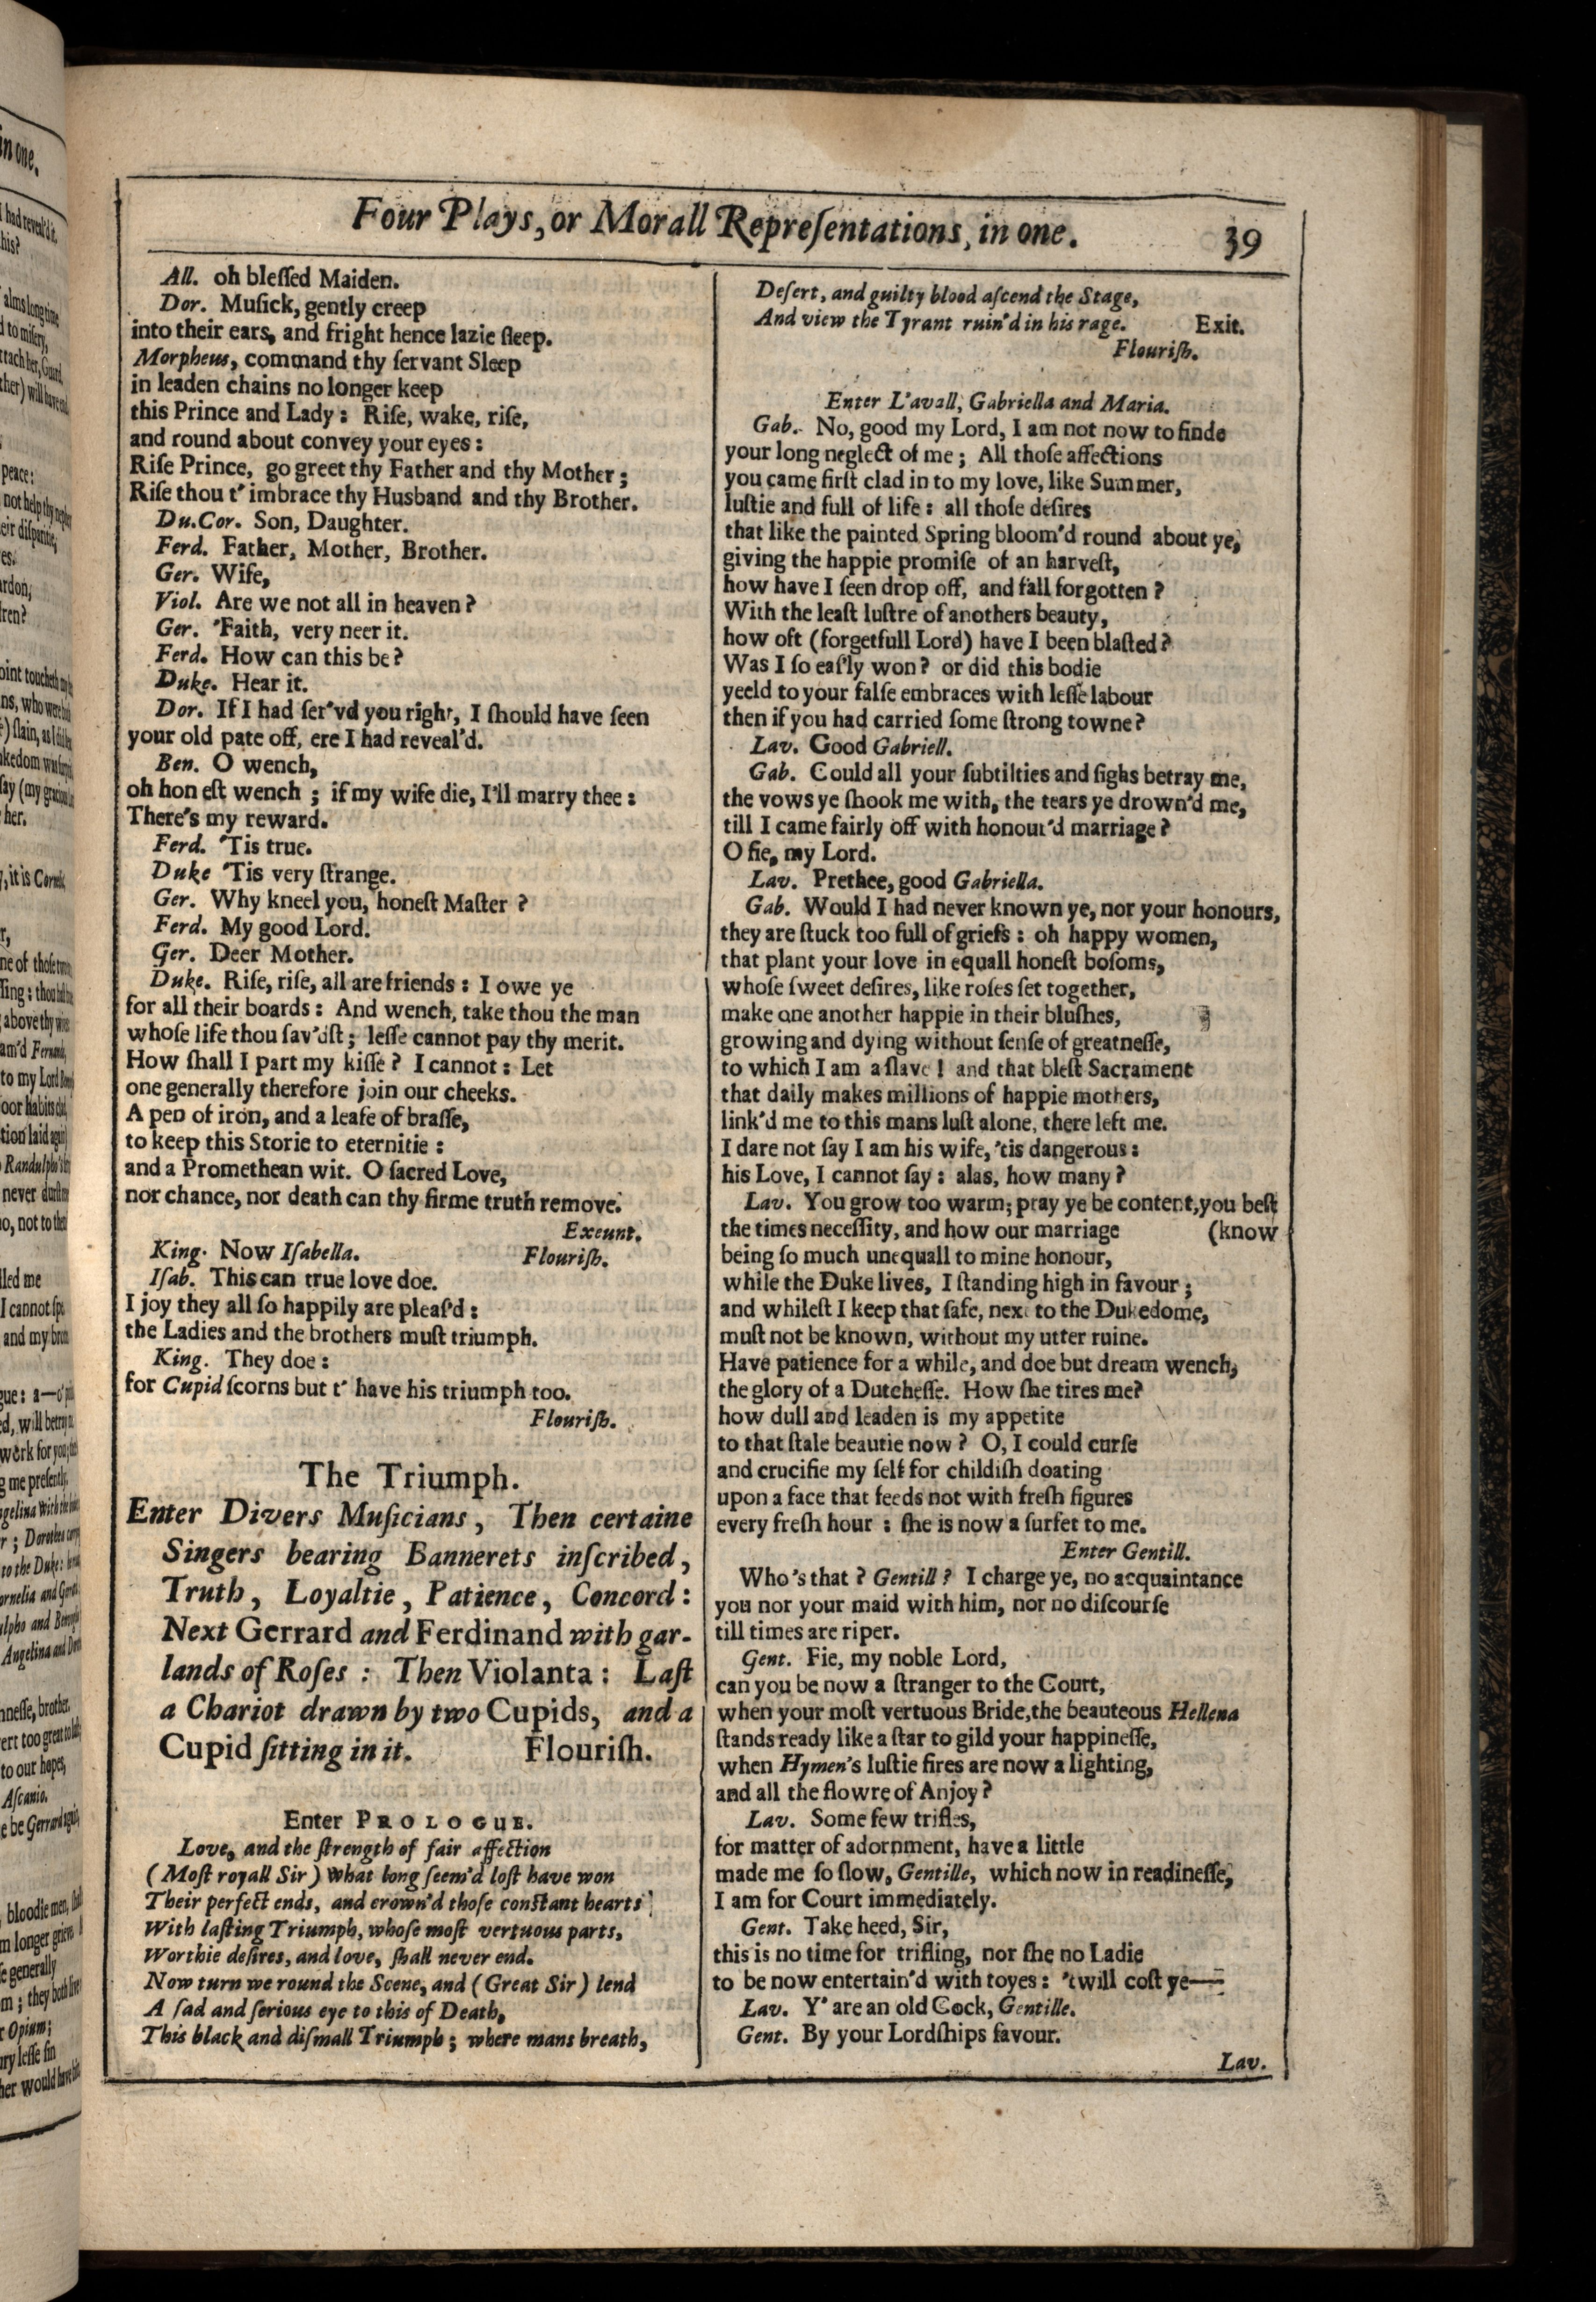 Four Plays, or Morall Repreſentations, in one.
39
All. oh bleſſed Maiden.
Dor. Muſick, gently creep
into their ears, and fright hence lazie ſleep.
Morpheus, command thy ſervant Sleep
in leaden chains no longer keep
this Prince and Lady : Riſe, wake, riſe,
and round about convey your eyes :
Riſe Prince, go greet thy Father and thy Mother ;
Riſe thou t' imbrace thy Husband and thy Brother.
Du.Cor. Son, Daughter.
Ferd. Father, Mother, Brother.
Ger. Wife,
Viol. Are we not all in heaven ?
Ger. 'Faith, very neer it.
Ferd. How can this be ?
Duke. Hear it.
Dor. If I had ſer'vd you right, I ſhould have ſeen
your old pate off, ere I had reveal'd.
Ben. O wench,
oh honeſt wench ; if my wife die, I'll marry thee :
There's my reward.
Ferd. 'Tis true.
Duke 'Tis very ſtrange.
Ger. Why kneel you, honeſt Maſter ?
Ferd. My good Lord.
Ger. Deer Mother.
Duke. Riſe, riſe, all are friends : I owe ye
for all their boards : And wench, take thou the man
whoſe life thou ſav'dſt ; leſſe cannot pay thy merit.
How ſhall I part my kiſſe ? I cannot : Let
one generally therefore join our cheeks.
A pen of iron, and a leafe of braſſe,
to keep this Storie to eternitie :
and a Promethean wit. O ſacred Love,
nor chance, nor death can thy firme truth remove.
Exeunt.
King. Now Iſabella. Flouriſh.
Iſab. This can true love doe.
I joy they all ſo happily are pleaſ'd :
the Ladies and the brothers muſt triumph.
King. They doe :
for Cupid ſcorns but t' have his triumph too.
Flouriſh.
The Triumph.
Enter Divers Muſicians, Then certaine
Singers bearing Bannerets inſcribed,
Truth, Loyaltie, Patience, Concord :
Next Gerrard and Ferdinand with gar-
lands of Roſes : Then Violanta : Laſt
a Chariot drawn by two Cupids, and a
Cupid ſitting in it. Flouriſh.
Enter PROLOGUE.
Love, and the ſtrength of fair affection
(Moſt royall Sir) what long ſeem'd loſt have won
Their perfect ends, and crown'd thoſe conſtant hearts
With laſting Triumph, whoſe moſt vertuous parts,
Worthie deſires, and love, ſhall never end.
Now turn we round the Scene, and (Great Sir) lend
A ſad and ſerious eye to this of Death,
This black and diſmall Triumph ; where mans breath,
Deſert, and guilty blood aſcend the Stage,
And view the Tyrant ruin'd in his rage. Exit.
Flouriſh.
Enter L'avall, Gabriella and Maria.
Gab. No, good my Lord, I am not now to finde
your long neglect of me ; All thoſe affections
you came firſt clad in to my love, like Summer,
luſtie and full of life : all thoſe deſires
that like the painted Spring bloom'd round about ye,
giving the happie promiſe of an harveſt,
how have I ſeen drop off, and fall forgotten ?
With the leaſt luſtre of anothers beauty,
how oft (forgetfull Lord) have I been blaſted ?
Was I ſo eaſ'ly won ? or did this bodie
yeeld to your falſe embraces with leſſe labour
then if you had carried ſome ſtrong towne ?
Lav. Good Gabriell.
Gab. Could all your ſubtilties and ſighs betray me,
the vows ye ſhook me with, the tears ye drown'd me,
till I came fairly off with honour'd marriage ?
O fie, my Lord.
Lav. Prethee, good Gabriella.
Gab. Would I had never known ye, nor your honours,
they are ſtuck too full of griefs : oh happy women,
that plant your love in equall honeſt boſoms,
whoſe ſweet deſires, like roſes ſet together,
make one another happie in their bluſhes,
growing and dying without ſenſe of greatneſſe,
to which I am a ſlave ! and that bleſt Sacrament
that daily makes millions of happie mothers,
link'd me to this mans luſt alone, there left me.
I dare not ſay I am his wife, 'tis dangerous :
his Love, I cannot ſay : alas, how many ?
Lav. You grow too warm ; pray ye be content, you beſt
the times neceſſity, and how our marriage (know
being ſo much unequall to mine honour,
while the Duke lives, I ſtanding high in favour ;
and whileſt I keep that ſafe, next to the Dukedome,
muſt not be known, without my utter ruine.
Have patience for a while, and doe but dream wench,
the glory of a Dutcheſſe. How ſhe tires me?
how dull and leaden is my appetite
to that ſtale beautie now ? O, I could curſe
and crucifie my ſelf for childiſh doating
upon a face that feeds not with freſh figures
every freſh hour : ſhe is now a ſurfet to me.
Enter Gentill.
Who's that ? Gentill ? I charge ye, no acquaintance
you nor your maid with him, nor no diſcourſe
till times are riper.
Gent. Fie, my noble Lord,
can you be now a ſtranger to the Court,
when your moſt vertuous Bride, the beauteous Hellena
ſtands ready like a ſtar to gild your happineſſe,
when Hymen's luſtie fires are now a lighting,
and all the flowre of Anjoy ?
Lav. Some few trifles,
for matter of adornment, have a little
made me ſo ſlow, Gentille, which now in readineſſe,
I am for Court immediately.
Gent. Take heed, Sir,
this is no time for trifling, nor ſhe no Ladie
to be now entertain'd with toyes : 'twill coſt ye——
Lav. Y' are an old Cock, Gentille.
Gent. By your Lordſhips favour.
Lav.